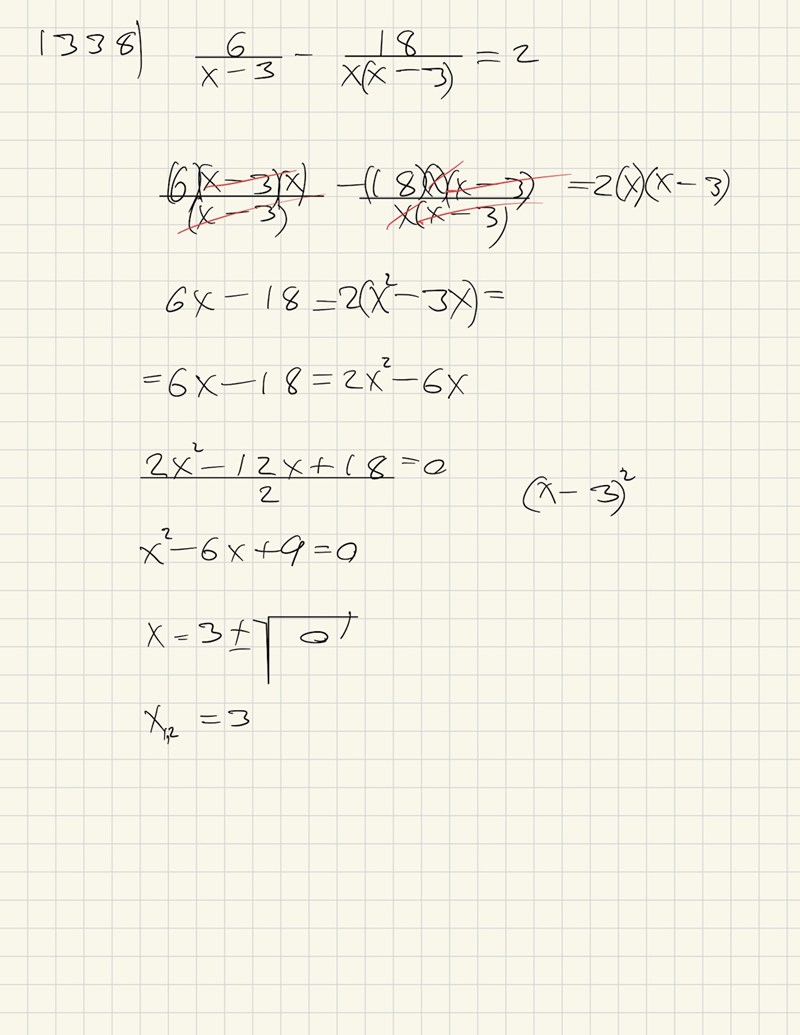 1338) 6/(x-3) - 18/(x(x-3)) = 2
(6)(x-3)(x)/(x-3) - (18)(x)(x-3)/(x(x-3)) = 2(x)(x-3)
6x - 18 = 2(x² - 3x) =
= 6x - 18 = 2x² - 6x
(2x² - 12x + 18)/2 = 0
(x-3)²
x² - 6x + 9 = 0
x = 3 ± √0
x₁,₂ = 3